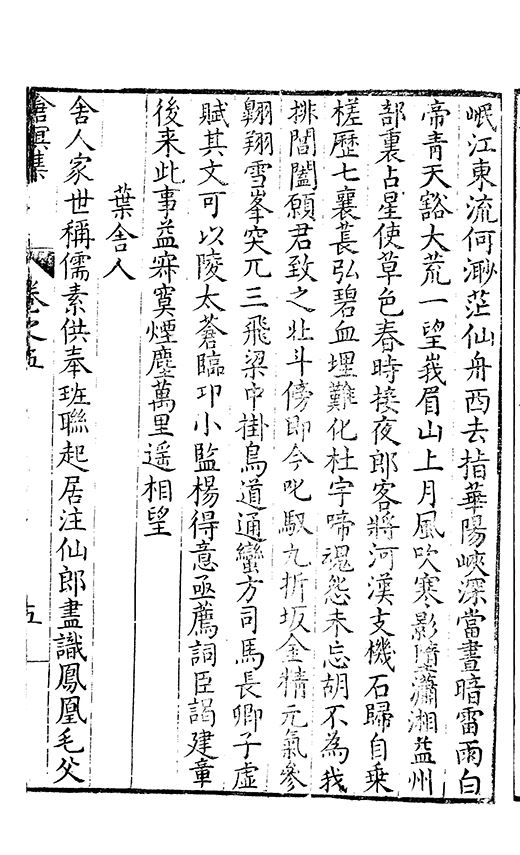 岷江東流何渺茫仙舟西去指華陽峽深當晝暗雷雨白
帝青天豁大荒一望峩眉山上月風吹寒影墮瀟湘益州
部裏占星使草色春時接夜郎客將河漢支機石歸自乗
槎歷七襄萇弘碧血埋難化杜宇啼魂怨未忘胡不為我
排閶闔願君致之北斗傍即今叱馭九折坂金精元氣參
翱翔雪峯突兀三飛梁中掛鳥道通蠻方司馬長卿子虛
賦其文可以陵太蒼臨卭小監楊得意亟薦詞臣謁建章
後来此事益寂寞煙塵萬里遥相望
葉舍人
舍人家世稱儒素供奉班聯起居注仙郎盡識鳳凰毛父
滄溟集
卷之五
五